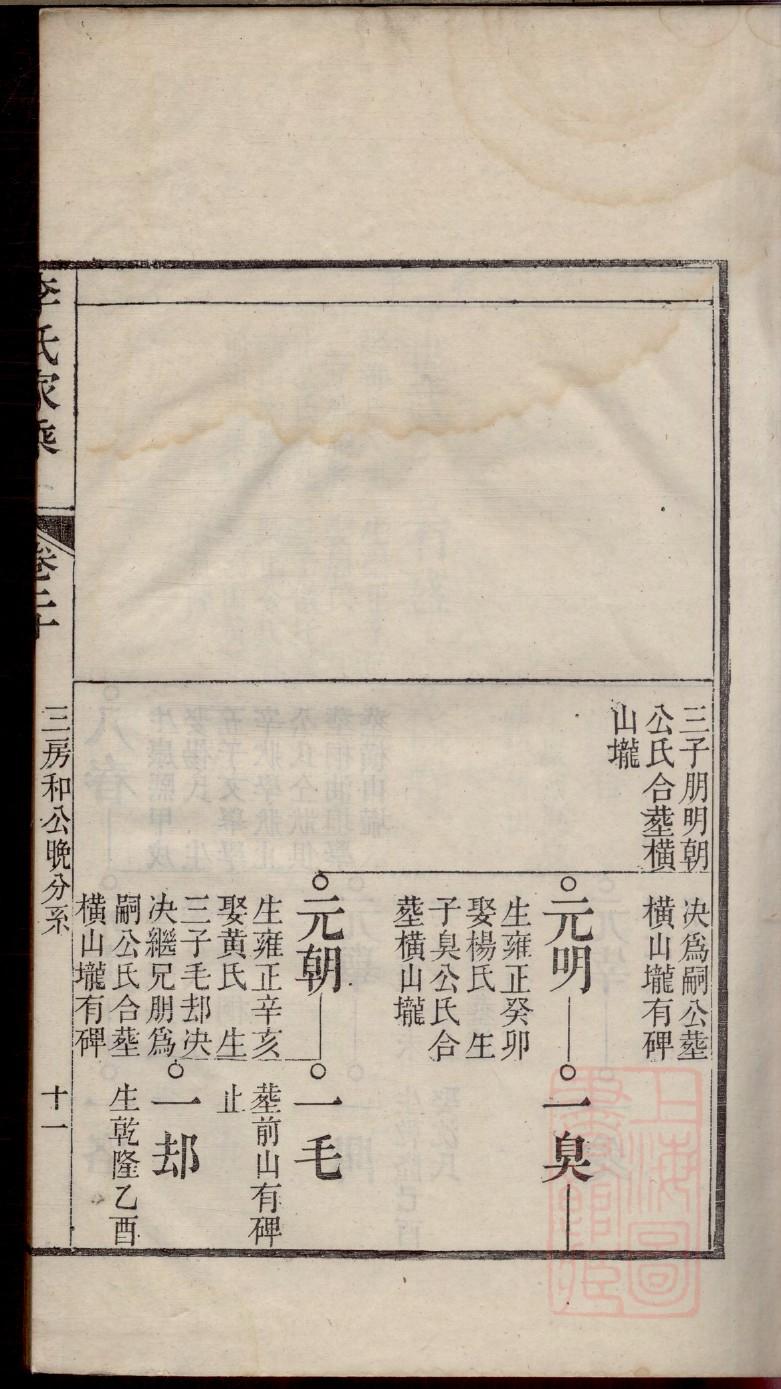 三子朋明朝
公氏合塟橫
山壠
决爲嗣公塟
橫山壠有碑
元明
生雍正癸卯
娶楊氏 生
子臭公氏合
塟橫山壠
一臭
元朝
生雍正辛亥
娶黃氏 生
三子毛却决
决繼兄朋爲
嗣公氏合塟
橫山壠有碑
一毛
塟前山有碑
止
一却
生乾隆乙酉
李氏家乘
卷二十
三房和公晚分系
十一
上海圖書館藏